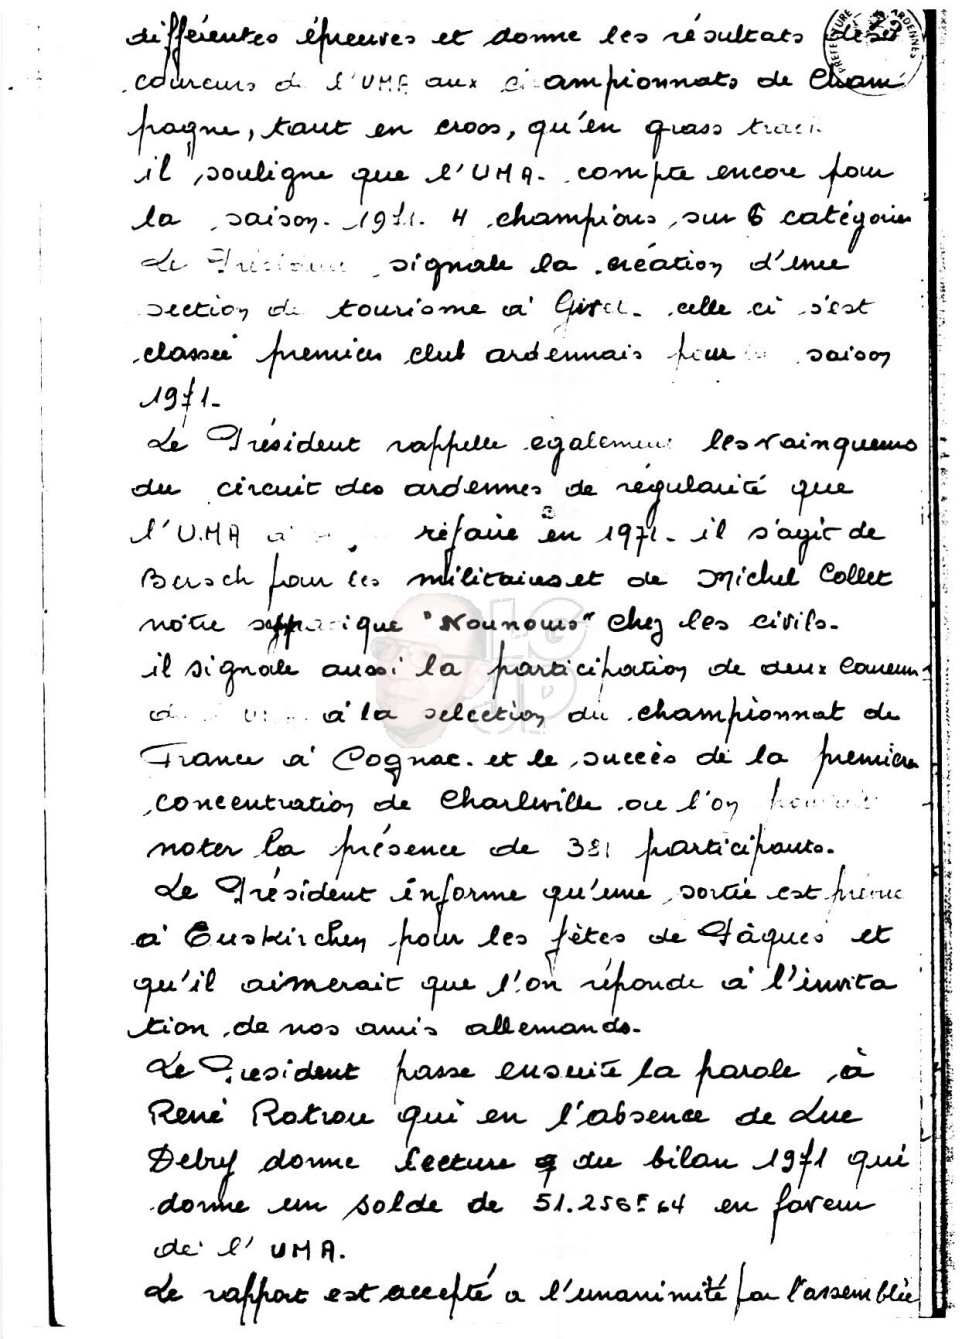 différentes épreuves et donne les résultats des
coureurs de l'UMA aux championnats de Cham
pagne, tant en cross, qu'en grass track
il souligne que l'UMA. compte encore pour
la saison. 1971. 4 champions sur 6 catégories
Le Président signale la création d'une
section de tourisme à Givet. celle ci s'est
classée premier club ardennais pour la saison
1971.
Le Président rappelle également les vainqueurs
du circuit des ardennes de régularité que
l'U.MA a refaire en 1971. il s'agit de
Bersch pour les militaires et de Michel Collet
notre "Nounours" chez les civils.
il signale aussi la participation de deux coureurs
de l'UMA à la selection du championnat de
France à Cognac. et le succès de la première
concentration de Charleville ou l'on pouvait
noter la présence de 381 participants.
Le Président informe qu'une sortie est prévue
à Euskirchen pour les fêtes de Pâques et
qu'il aimerait que l'on réponde à l'invita
tion de nos amis allemands.
Le President passe ensuite la parole à
René Rotrou qui en l'absence de Luc
Debry donne lecture du bilan 1971 qui
donne un solde de 51.256F64 en faveur
de l'UMA.
Le rapport est accepté a l'unanimité par l'assemblée
PREFECTURE ARDENNES
LG
JP